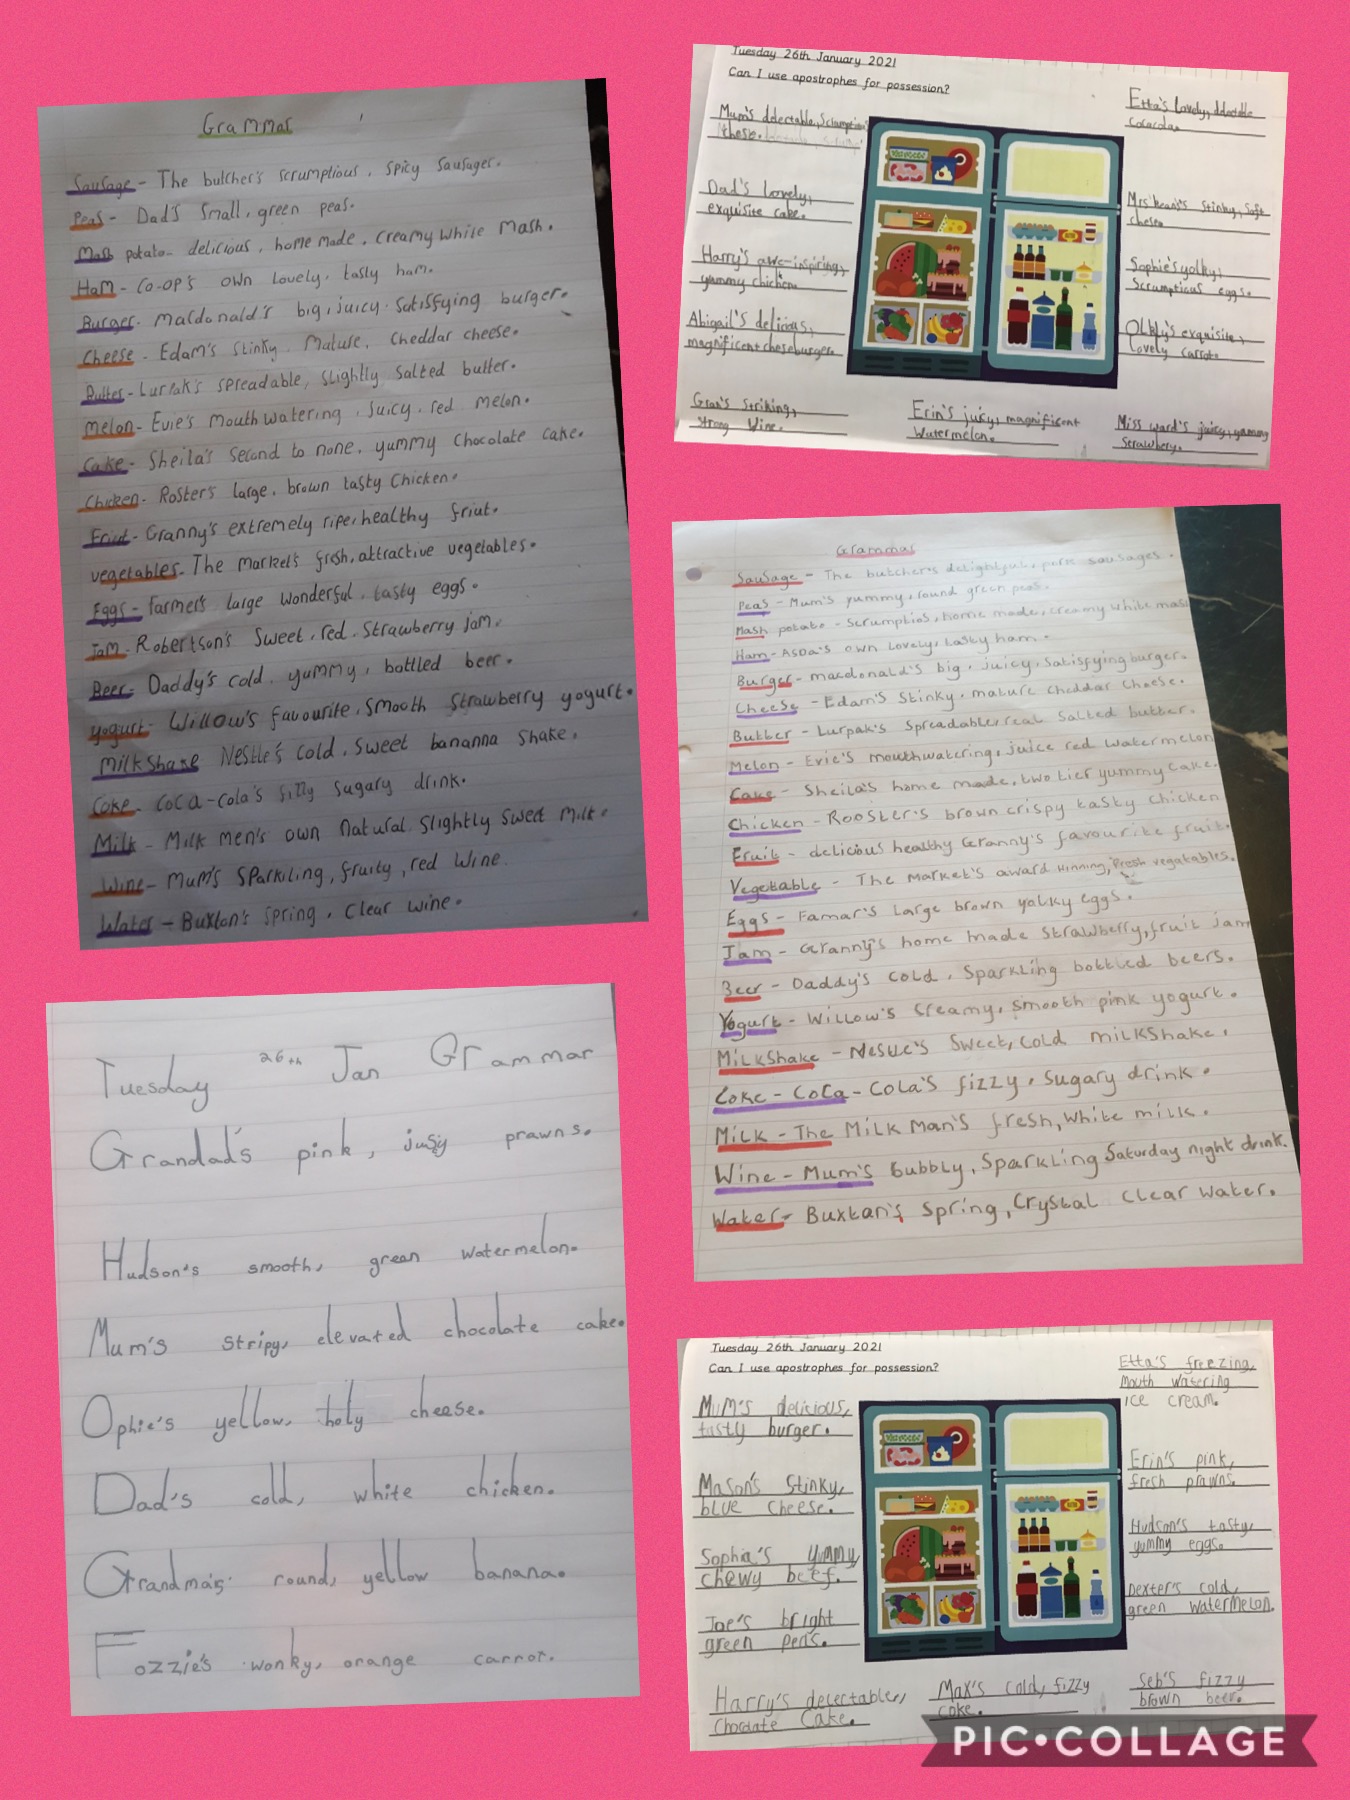 Grammar
Sausage - The butcher's scrumptious, spicy sausages.
Peas - Dad's small, green peas.
Mash potato - delicious, home made, creamy while mash.
Ham - Co-op's own lovely, tasty ham.
Burger - Macdonald's big, juicy satisfying burger.
Cheese - Edam's stinky. Mature, cheddar cheese.
Butter - Lurpak's spreadable, slightly salted butter.
Melon - Evie's mouthwatering, juicy, red melon.
Cake - Sheila's second to none, yummy chocolate cake.
Chicken - Roster's large, brown tasty chicken.
Friut - Granny's extremely ripe, healthy friut.
vegetables. The market's fresh, attractive vegetables.
Eggs - farmer's large wonderful, tasty eggs.
Jam - Robertson's sweet, red, strawberry jam.
Beer - Daddy's cold, yummy, bottled beer.
Yogurt - Willow's favourite, smooth strawberry yogurt.
Milkshake Nestle's cold, sweet bananna shake.
Coke - Coca-cola's fizzy sugary drink.
Milk - Milk men's own natural, slightly sweet milk.
Wine - Mum's sparkiling, fruity, red wine.
Water - Buxton's spring, clear wine.
Tuesday 26th January 2021
Can I use apostrophes for possession?
Mum's delectable,
these.
Dad's lovely,
exquisite cake.
Harry's awe-inspiring,
yummy chicken.
Abigail's delicious,
magnificent cheseburger.
Gran's striking,
strong wine.
Erin's juicy, magnificent
watermelon.
Miss ward's juicy, yummy
strawbery.
Etta's lovely, delectable
cocacola.
stinky, soft
chese.
Sophie's yolky,
scrumptious eggs.
exquisite,
lovely carrot.
Grammar
Sausage - The butcher's delightful, pork sausages.
Peas - Mum's yummy, round green peas.
Mash potato - scrumptios, home made, creamy white mash
Ham - ASDA's own lovely, tasty ham.
Burger - macdonald's big, juicy, satisfying burger.
Cheese - Edam's stinky, mature cheddar cheese.
Butter - Lurpak's spreadable, real salted butter.
Melon - Evie's mouthwatering, juice red watermelon
Cake - Sheila's home made, two tier yummy cake.
Chicken - Rooster's brown crispy tasty chicken
Fruit - delicious healthy Granny's favourite fruit.
Vegetable - The Market's award winning, fresh vegatables.
Eggs - Famar's large brown yolky eggs.
Jam - Granny's home made strawberry, fruit jam
Beer - Daddy's cold, sparkling bottled beers.
Yogurt - Willow's creamy, smooth pink yogurt.
Milkshake - Nestle's sweet, cold milkshake.
Coke - Coca-Cola's fizzy, sugary drink.
Milk - The Milk Man's fresh, white milk.
Wine - Mum's bubbly, sparkling Saturday night drink.
Water - Buxtan's spring, crystal clear water.
Tuesday 26th Jan Grammar
Grandad's pink, prawns.
Hudson's smooth, green watermelon.
Mum's stripy, elevated chocolate cake.
Ophie's yellow, holy cheese.
Dad's cold, white chicken.
Grandma's round, yellow banana.
Fozzie's wonky, orange carrot.
Tuesday 26th January 2021
Can I use apostrophes for possession?
Mum's delicious,
tasty burger.
Mason's stinky,
blue cheese.
Sophia's yummy,
chewy beef.
Joe's bright
green
Harry's delectable,
Choclate Cake.
Max's cold, fizzy
coke.
Seb's fizzy
brown beer.
Etta's freezing,
Mouth watering
ice cream.
Erin's pink,
fresh prawns.
Hudson's tasty,
yummy eggs.
Dexter's cold,
green watermelon.
PIC•COLLAGE